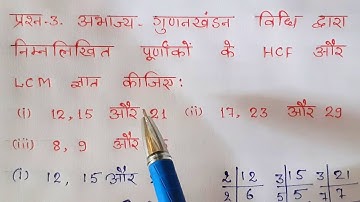 प्रश्न-3. अभाज्य-गुणनखंडन विधि द्वारा
निम्नलिखित पूर्णांकों के HCF और
LCM ज्ञात कीजिए:
(i) 12, 15 और 21 (ii) 17, 23 और 29
(iii) 8, 9 और
(i) 12, 15 और
2 12 3 15 3 21
2 6 5 5 7 7